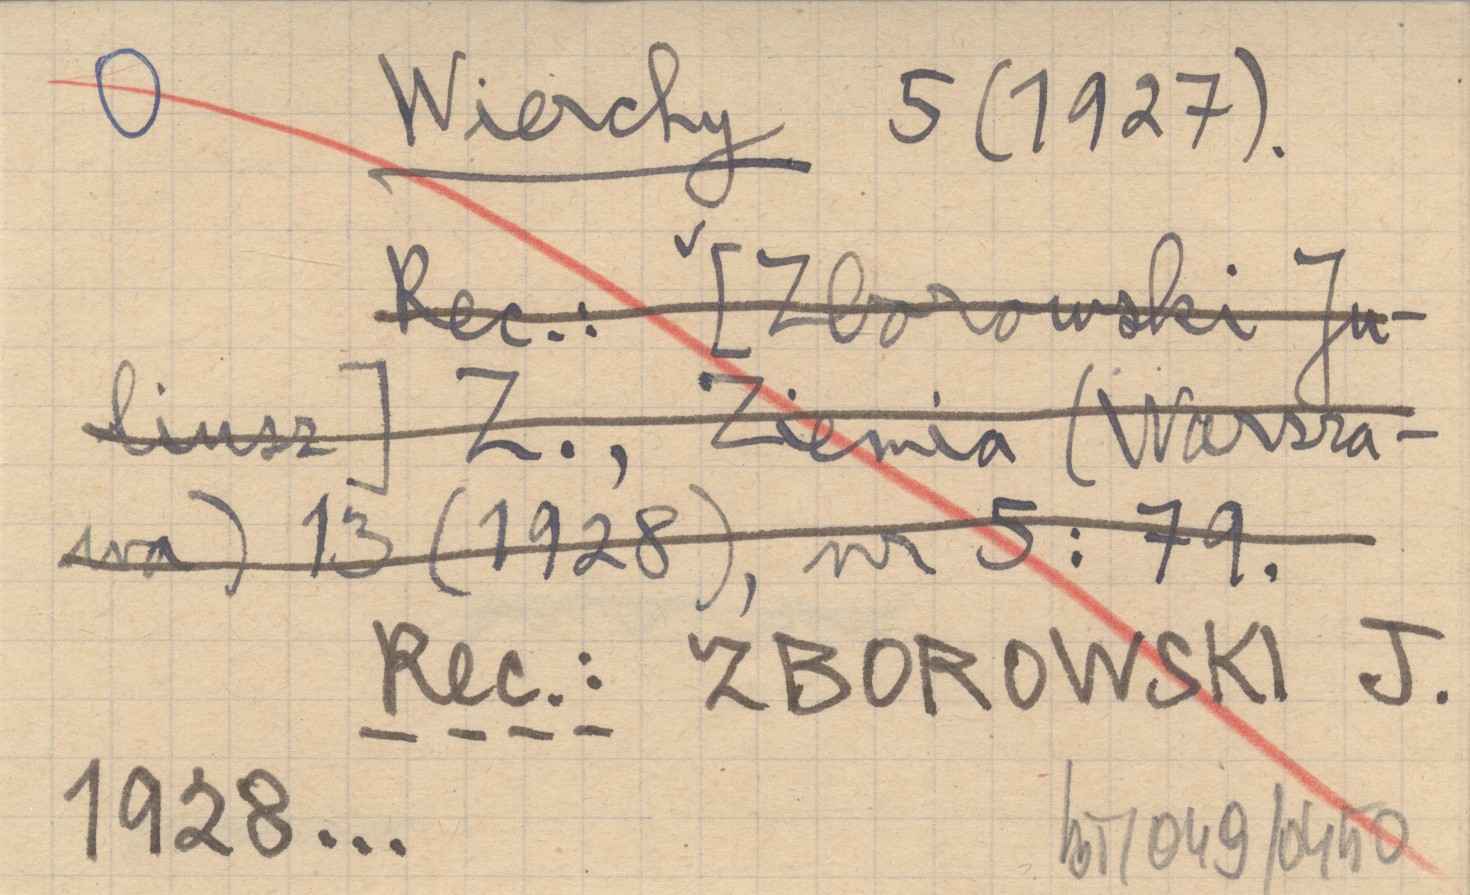 O Wierchy 5 (1927).
Rec.: [Zborowski Ju-
liusz] Z., Ziemia (Warsza-
wa) 13 (1928), nr 5: 79.
Rec.: ZBOROWSKI J.
1928...
/049/0450